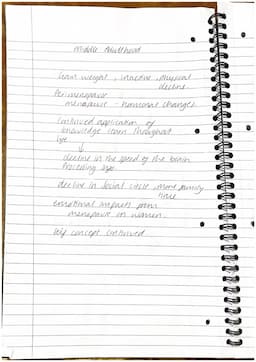 Middle Adulthood
Gain weight, inactive, physical
decline
Perimenopause
menopause - hormonal changes
Continued application of
knowledge learn throughout
life
↓
decline in the speed of the brain
processing
decline in social circle, more family
time
emotional impacts from
menopause on women.
Self concept continued